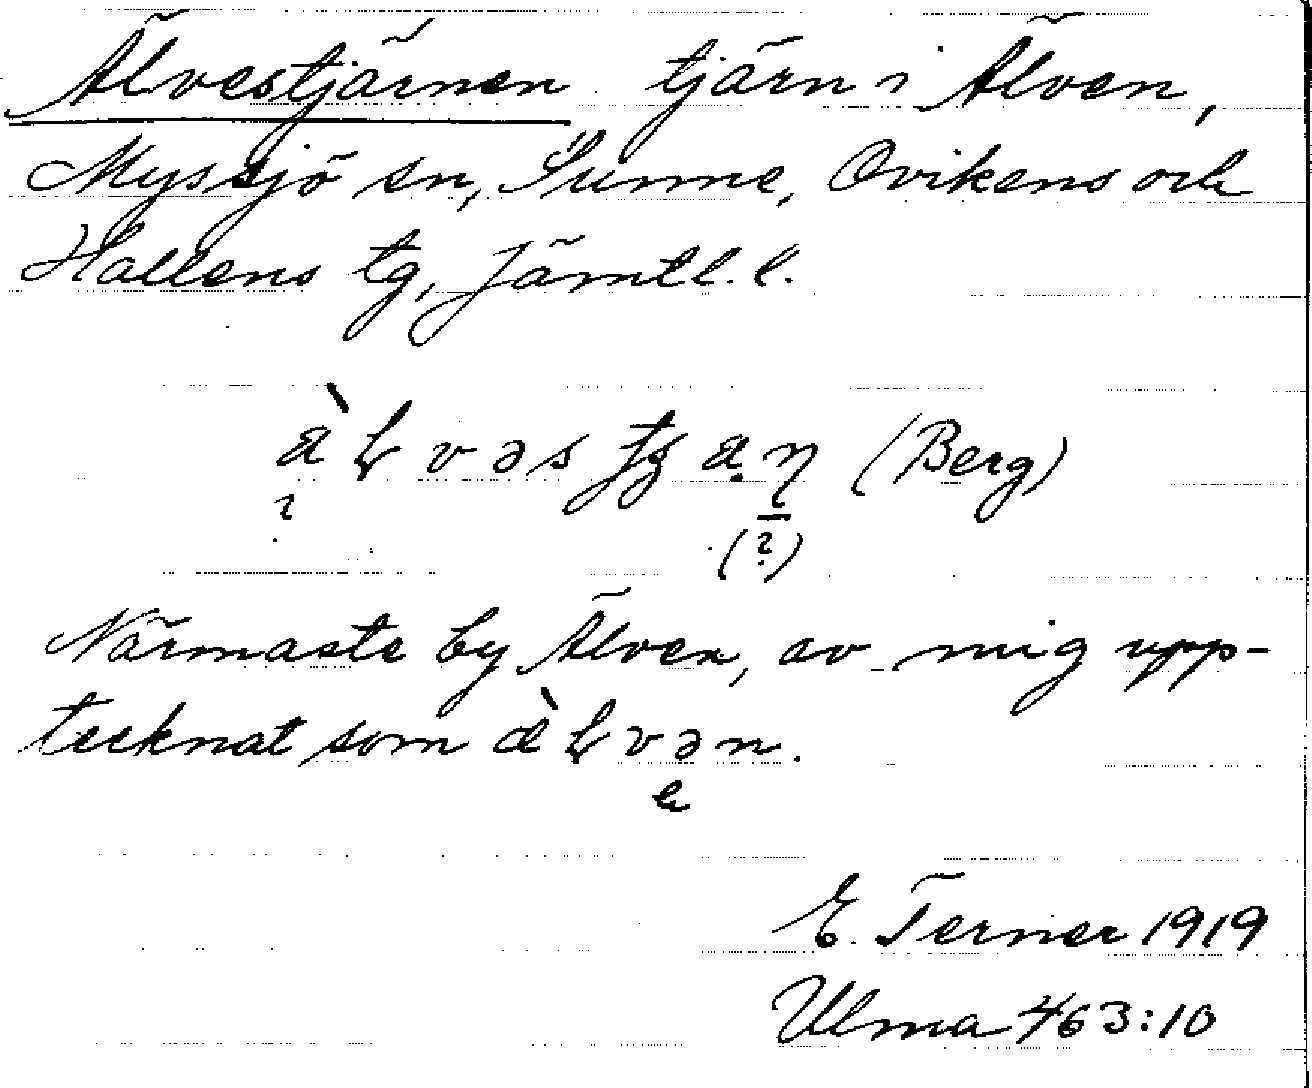 Älvestjärnen tjärn i Älven,
Myssjö sn, Sunne, Ovikens och
Hallens tg, Jämtl. l.
(Berg)
(?)
Närmaste by Älven, av mig upp-
tecknat som
E. Terner 1919
Ulma 463:10